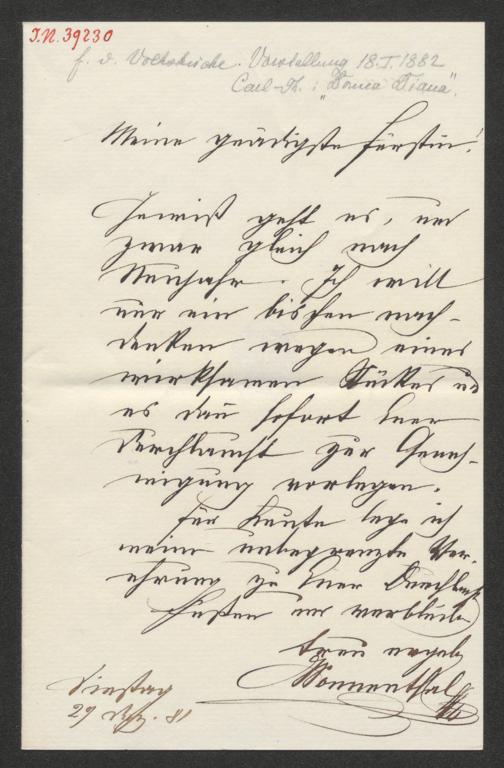 J.N. 39230
f. d. Volksküche. Vorstellung 18.I.1882
Carl-Th.: "Donna Diana".
Meine gnädigste Fürstin!
Gewiß geht es, und
zwar gleich nach
Neujahr. Ich will
nur ein bischen nach-
denken wegen eines
wirksamen Stückes und
es dan sofort Euer
Durchlaucht zur Geneh-
migung vorlegen.
Für heute lege ich
meine unbegrenzte Ver-
ehrung zu Euer Durchlaucht
Füßen und verbleibe
treu ergeb
Sonnenthal
Dienstag
27 Dez. 81